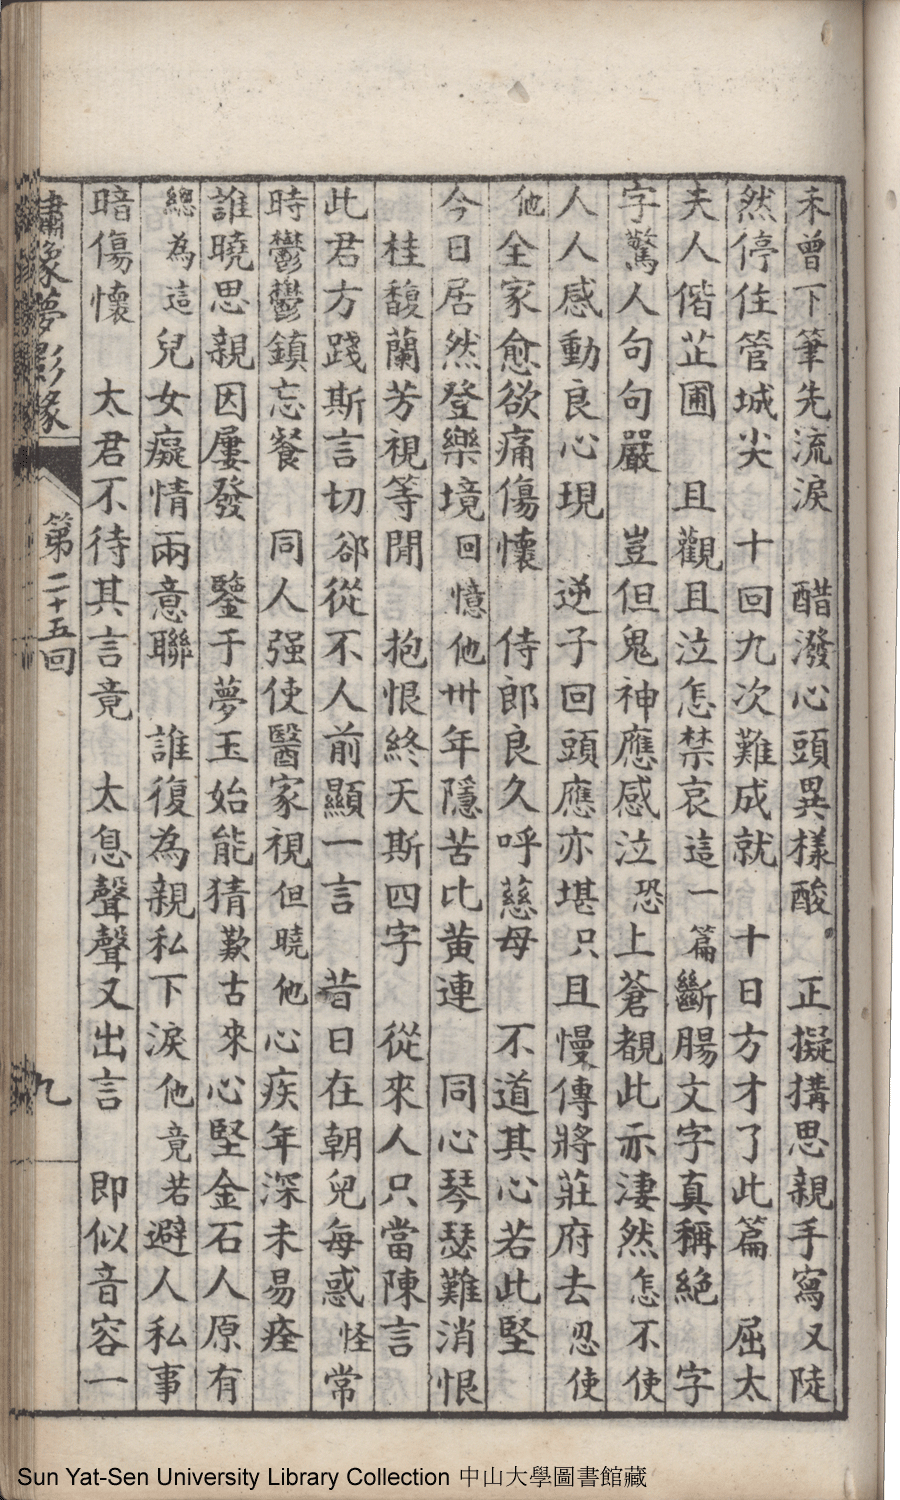 未曾下筆先流淚　醋潑心頭異樣酸。正擬搆思親手寫又陡
然停住管城尖　十回九次難成就　十日方才了此篇　屈太
夫人偕芷圃　且觀且泣怎禁哀這一篇斷腸文字真稱絕　字
字驚人句句嚴　豈但鬼神應感泣恐上蒼覩此亦淒然怎不使
人人感動良心現　逆子回頭應亦堪只且慢傳將莊府去忍使
他全家愈欲痛傷懷　侍郎良久呼慈母　不道其心若此堅
今日居然登樂境回憶他卅年隱苦比黄連　同心琴瑟難消恨
桂馥蘭芳視等閒　抱恨終天斯四字　從來人只當陳言
此君方踐斯言切郤從不人前顯一言　昔日在朝兒每惑怪常
時鬱鬱鎮忘餐　同人强使醫家視但曉他心疾年深未易痊
誰曉思親因屢發　鑒于夢玉始能猜歎古來心堅金石人原有
總為這兒女癡情兩意聯　誰復為親私下淚他竟若避人私事
暗傷懷　太君不待其言竟　太息聲聲又出言　即似音容一
繡像夢影緣
第二十五回
九
Sun Yat-Sen University Library Collection 中山大學圖書館藏